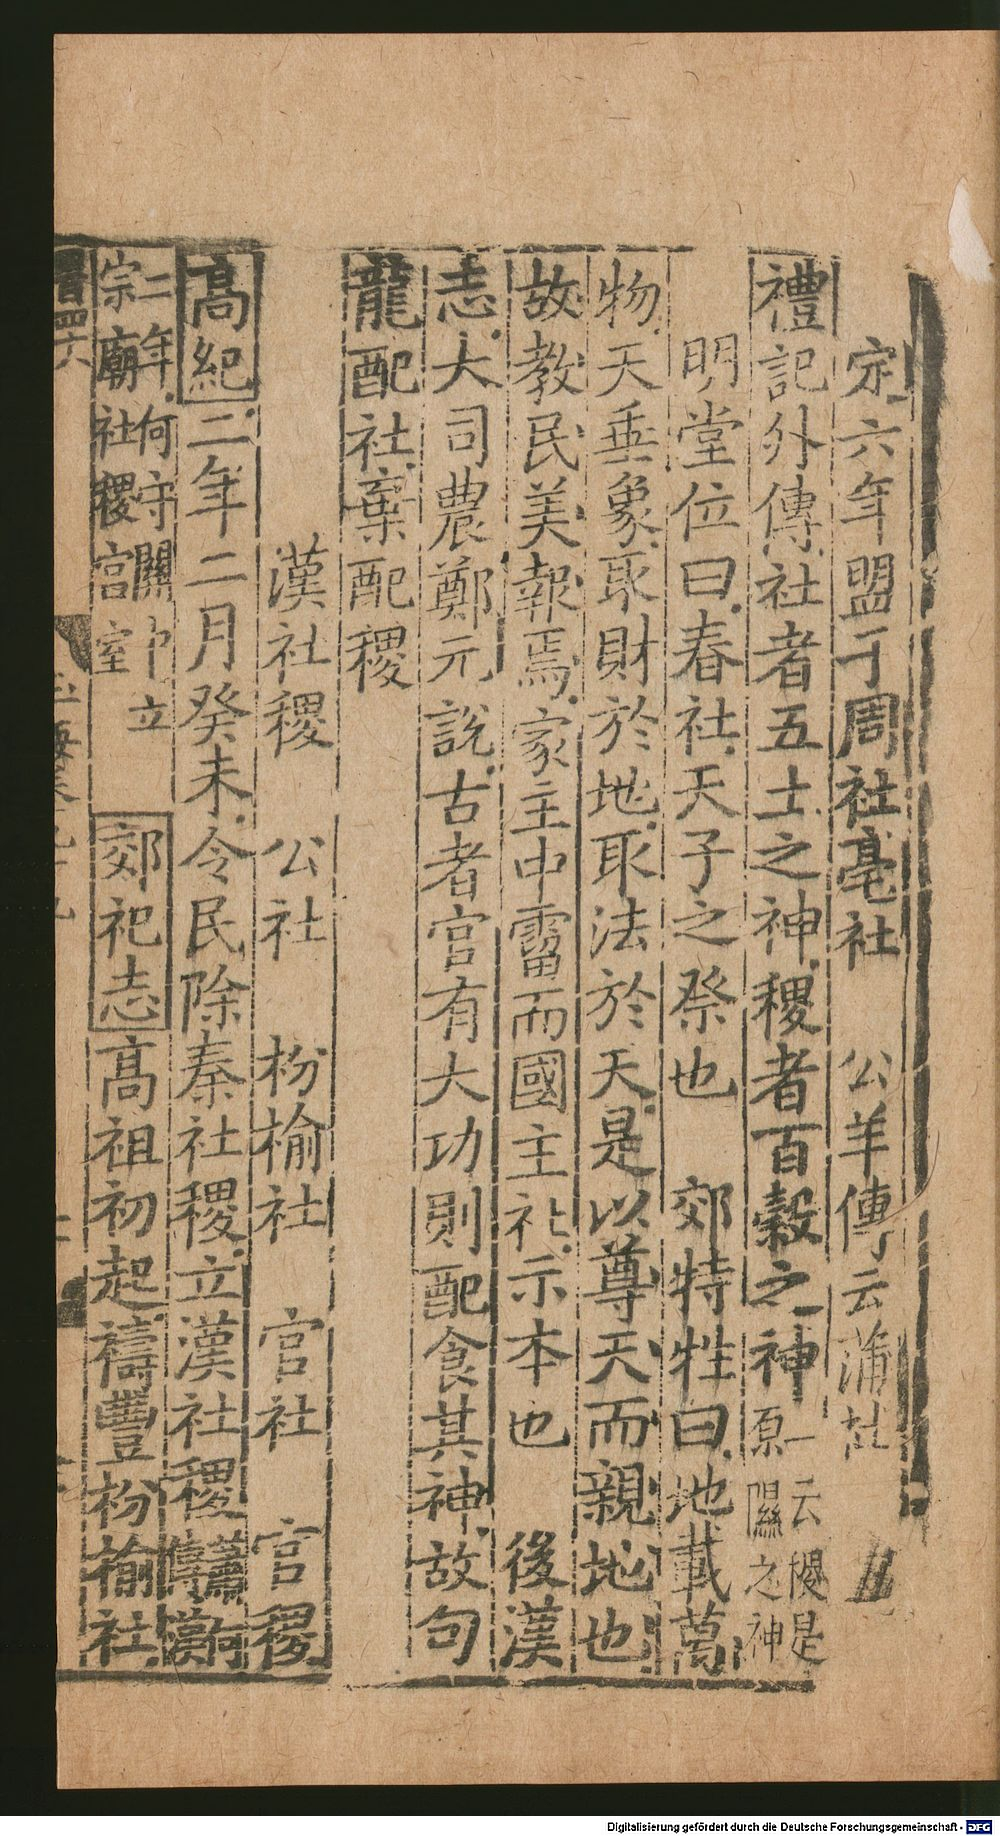 宗六年盟于周社亳社　公羊傳云蒲社
禮記外傳社者五土之神稷者百穀之神一云稷是原隰之神
明堂位曰春社天子之祭也　郊特牲曰地載萬
物天垂象取財於地取法於天是以尊天而親地也
故教民美報焉家主中霤而國主社示本也　後漢
志大司農鄭元說古者官有大功則配食其神故句
龍配社棄配稷
漢社稷　公社　枌榆社　官社　官稷
高紀二年二月癸未令民除秦社稷立漢社稷
二年何守關中立
宗廟社稷宮室　郊祀志高祖初起禱豐枌榆社
Digitalisierung gefördert durch die Deutsche Forschungsgemeinschaft - DFG